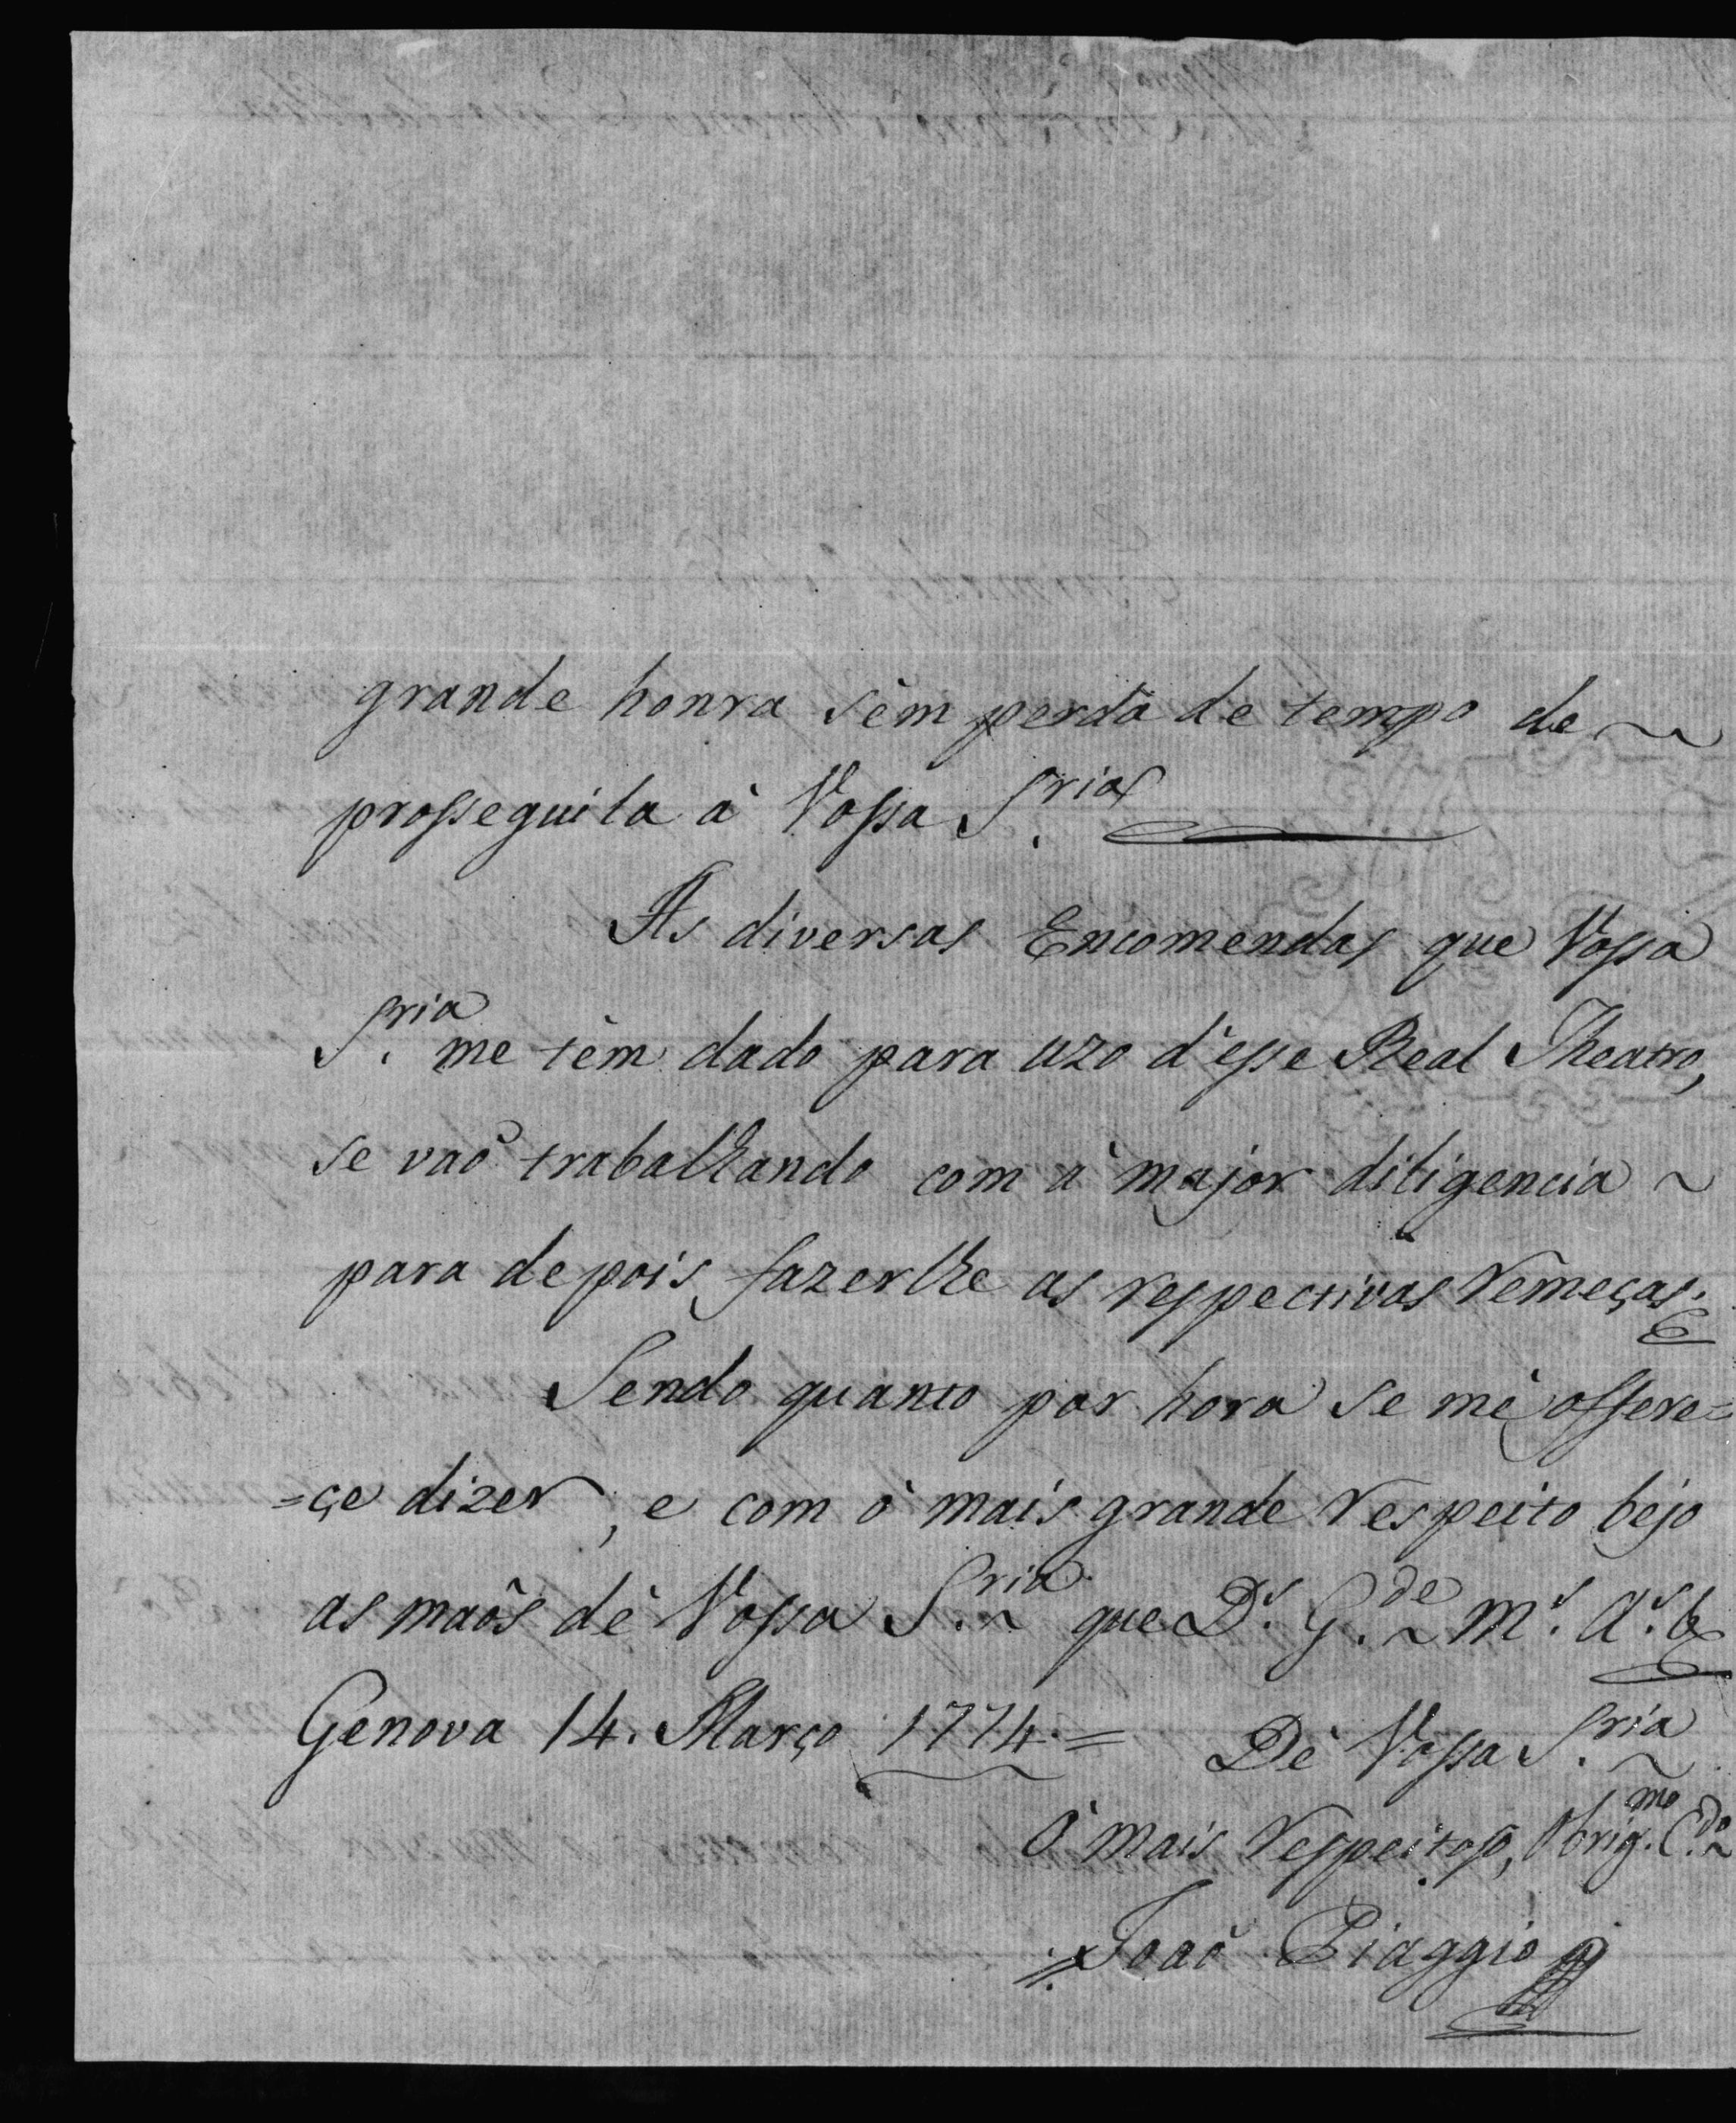 grande honra sèm perda de tempo de ~
prosseguila à Vossa S.ria
As diversas Encomendas que Vossa
S.ria me tèm dado para uzo d'esse Real Theatro,
se vaõ trabalhando com à major diligencia ~
para depois fazerlhe as respectivas remeças.
Sendo quanto por hora se mè offere=
=çe dizer, e com ò mais grande respeito bejo
as maõs dè Vossa S.ria que D.s G.de m.s a.s &
Genova 14. Março 1774.= Dè Vossa S.ria
ò mais respeitoso, Obrig.mo C.do
João Piaggio